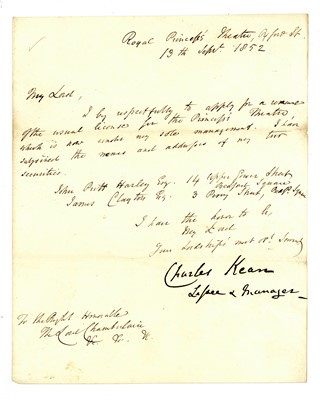 Royal Princess's Theatre, Oxford St.
13th Sept. 1852
My Lord,
I beg respectfully to apply for a renewal
of the usual licenses for the Princess' Theatre,
which is now under my sole management. I have
subjoined the names and addresses of my two
securities.
John Pritt Harley Esq. 14 Upper Gower Street,
Bedford Square
James Clayton Esq. 3 Percy Street, Bedfd. Square
I have the honor to be,
My Lord
Your Lordship's most obt. Servant
Charles Kean
Lessee & Manager
To The Right Honorable
The Lord Chamberlain
&c &c &c